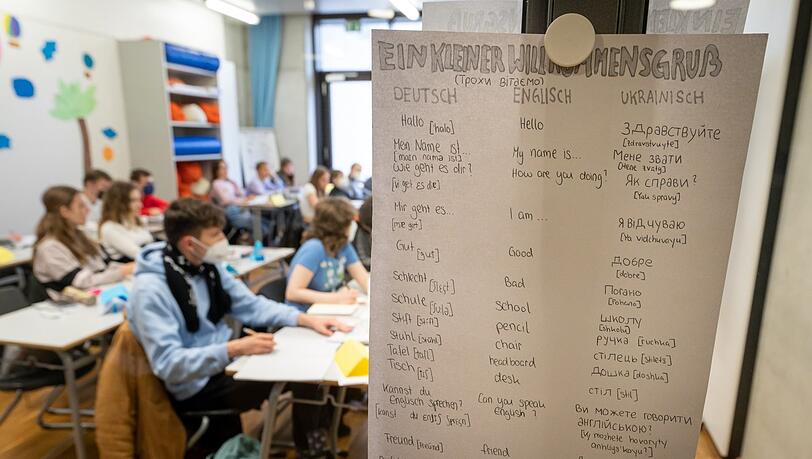 EIN KLEINER WILLKOMMENSGRUß
(Трохи вітаємо)
DEUTSCH ENGLISCH UKRAINISCH
Hallo [halo] Hello Здравствуйте
[zdravstvuyte]
Mein Name ist... My name is... Мене звати
[mein nama ist] [Mene zvaty]
Wie geht es dir? How are you doing? Як справи?
[vi get es dia] [Yak spravy]
Mir geht es... I am ... я відчуваю
[mɪe get] [Ya vidchuvayu]
Gut [gut] Good добре
[dobre]
Schlecht Bad Погано
[Pohano]
Schule School школу
[shkolu]
Stift pencil ручка [ruchka]
Stuhl chair стілець [stilets]
Tafel headboard Дошка [doshka]
Tisch desk стіл [stil]
Kannst du Can you speak Ви можете говорити
Englisch sprechen? English? англійською?
[Vy mozhete hovoryty
Freund friend